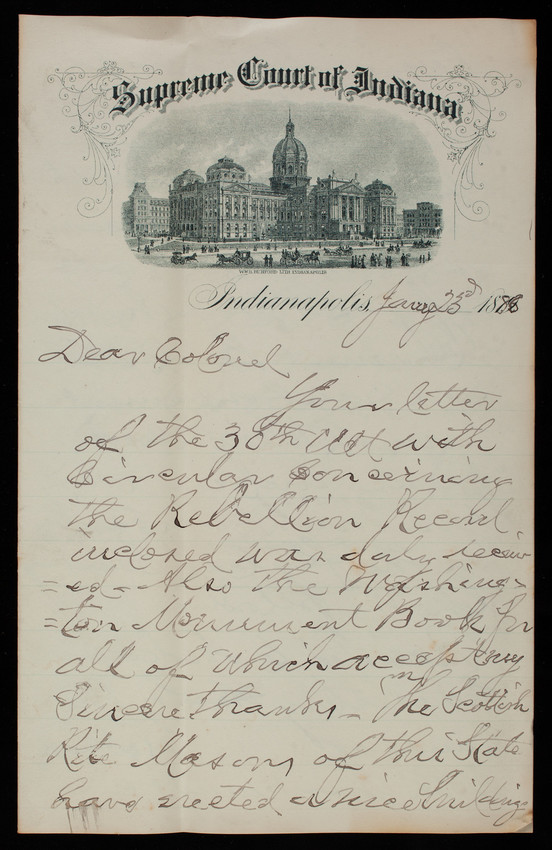 Supreme Court of Indiana
WM. B. BURFORD LITH. INDIANAPOLIS
Indianapolis, Jany 23d 188
Dear Colonel
Your letter
of the 30th Ult with
Circular Concerning
the Rebellion Record
inclosed was duly receiv
=ed - Also the Washing=
=ton Monument Book for
all of which accept my
Sincere thanks - The Scottish
Rite Masons of this State
have erected a nice building